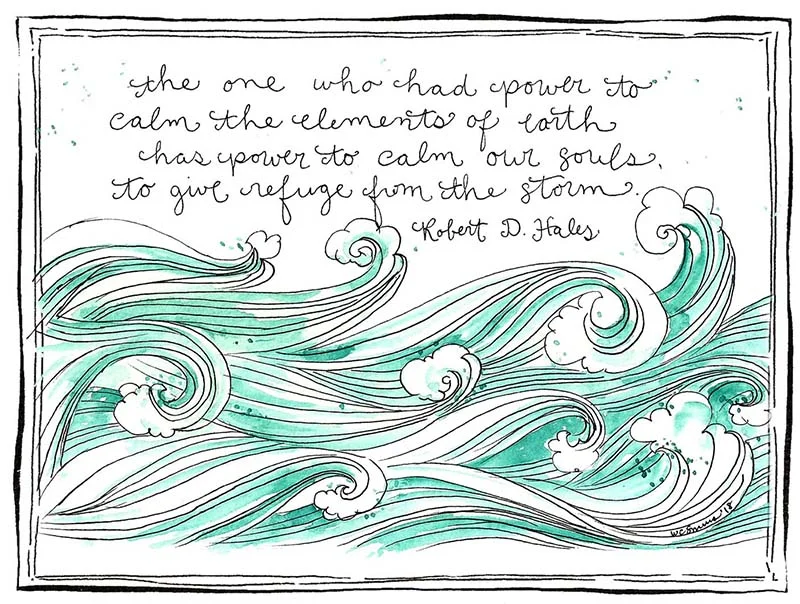 the one who had power to
calm the elements of earth
has power to calm our souls,
to give refuge from the storm.
Robert D. Hales